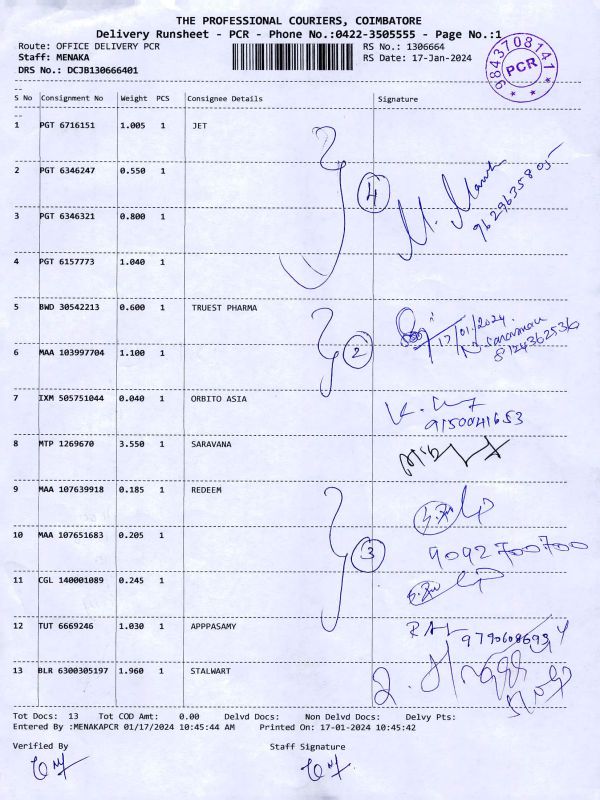 THE PROFESSIONAL COURIERS, COIMBATORE
Delivery Runsheet - PCR - Phone No.:0422-3505555 - Page No.:1
Route: OFFICE DELIVERY PCR
RS No.: 1306664
Staff: MENAKA
RS Date: 17-Jan-2024
DRS No.: DCJB130666401
9843708141
PCR
S No Consignment No Weight PCS Consignee Details Signature
1 PGT 6716151 1.005 1 JET
2 PGT 6346247 0.550 1
4
9629635805
3 PGT 6346321 0.800 1
4 PGT 6157773 1.040 1
5 BWD 30542213 0.600 1 TRUEST PHARMA
17/01/2024
6 MAA 103997704 1.100 1
2
7 IXM 505751044 0.040 1 ORBITO ASIA
9150041653
8 MTP 1269670 3.550 1 SARAVANA
9 MAA 107639918 0.185 1 REDEEM
10 MAA 107651683 0.205 1
3
9092700700
11 CGL 140001089 0.245 1
12 TUT 6669246 1.030 1 APPPASAMY
13 BLR 6300305197 1.960 1 STALWART
Tot Docs: 13 Tot COD Amt: 0.00 Delvd Docs: Non Delvd Docs: Delvy Pts:
Entered By :MENAKAPCR 01/17/2024 10:45:44 AM Printed On: 17-01-2024 10:45:42
Verified By Staff Signature